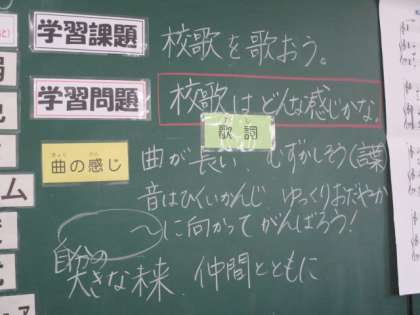 学習課題 校歌を歌おう。
学習問題 校歌はどんな感じかな。
歌詞
曲の感じ 曲が長い むずかしそう(言葉)
音はひくいかんじ ゆっくりおだやか
〜に向かってがんばろう!
自分の
大きな未来 仲間とともに